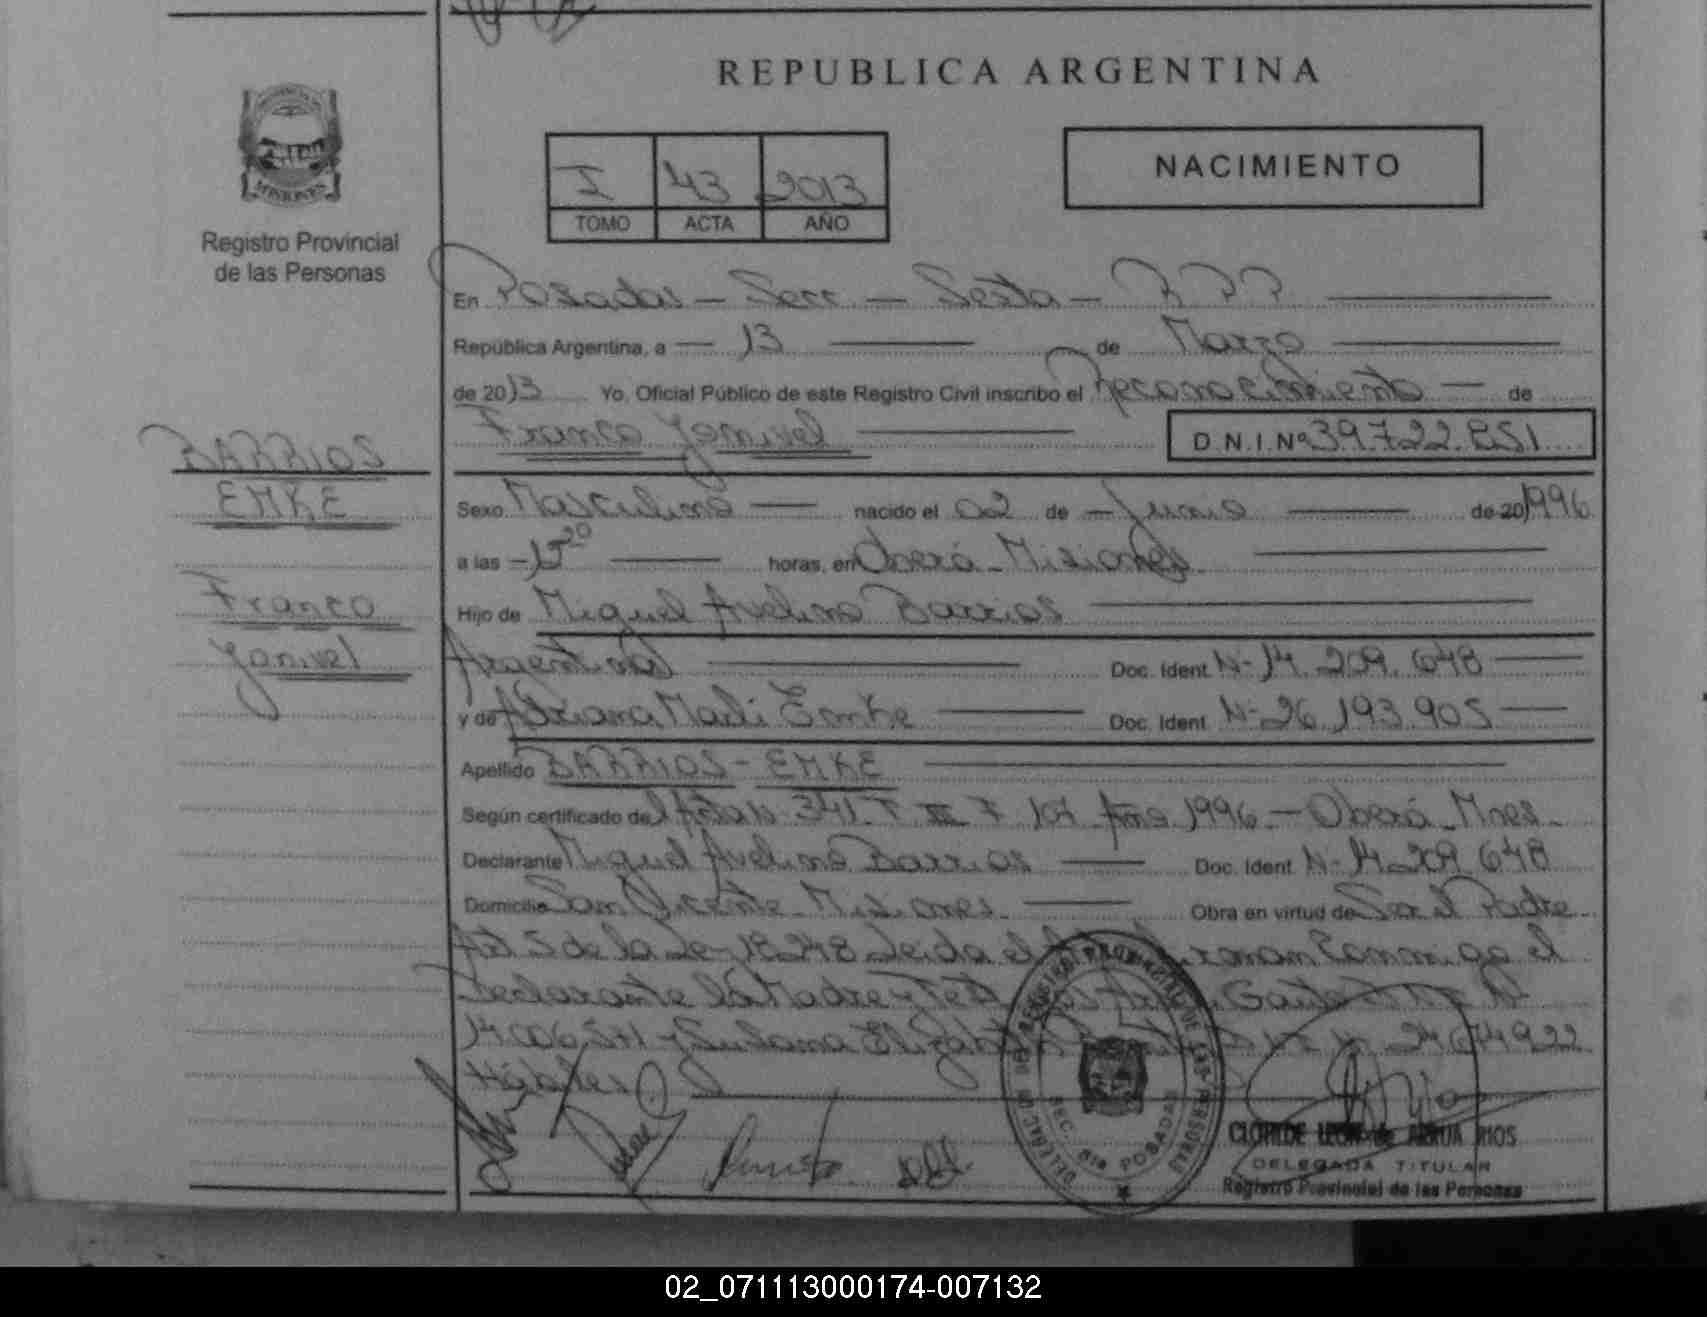 REPUBLICA ARGENTINA
MISIONES
Registro Provincial
de las Personas
I 43 2013
TOMO ACTA AÑO
NACIMIENTO
En Posadas - Secc - Sexta -
República Argentina, a 13 de Marzo
de 2013 Yo, Oficial Público de este Registro Civil inscribo el Reconocimiento de
Franco Yanivel D.N.I.Nº 39.722.851
BARRIOS
EMKE
Franco
Yanivel
Sexo Masculino nacido el 02 de Junio de 20 1996
a las horas, en Oberá - Misiones
Hijo de Miguel Avelino Barrios
Argentina Doc. Ident. Nº 14.209.648
y de Adriana Marli Emke Doc. Ident. Nº 26.193.905
Apellido BARRIOS - EMKE
Según certificado del Acta Nº 341 T III F 107 Año 1996 - Oberá - Mnes -
Declarante Miguel Avelino Barrios Doc. Ident. Nº 14.209.648
Domicilio San Vicente - Misiones Obra en virtud de Ser el Padre
Art 5 de la Ley 18248 Leida el firman conmigo el
Declarante la Madre y
y Susana 24674922
DELEGACION DEL REGISTRO PROVINCIAL DE LAS PERSONAS
SEC. 6ta POSADAS
CLOTILDE LEON de RIOS
DELEGADA TITULAR
Registro Provincial de las Personas
02_071113000174-007132